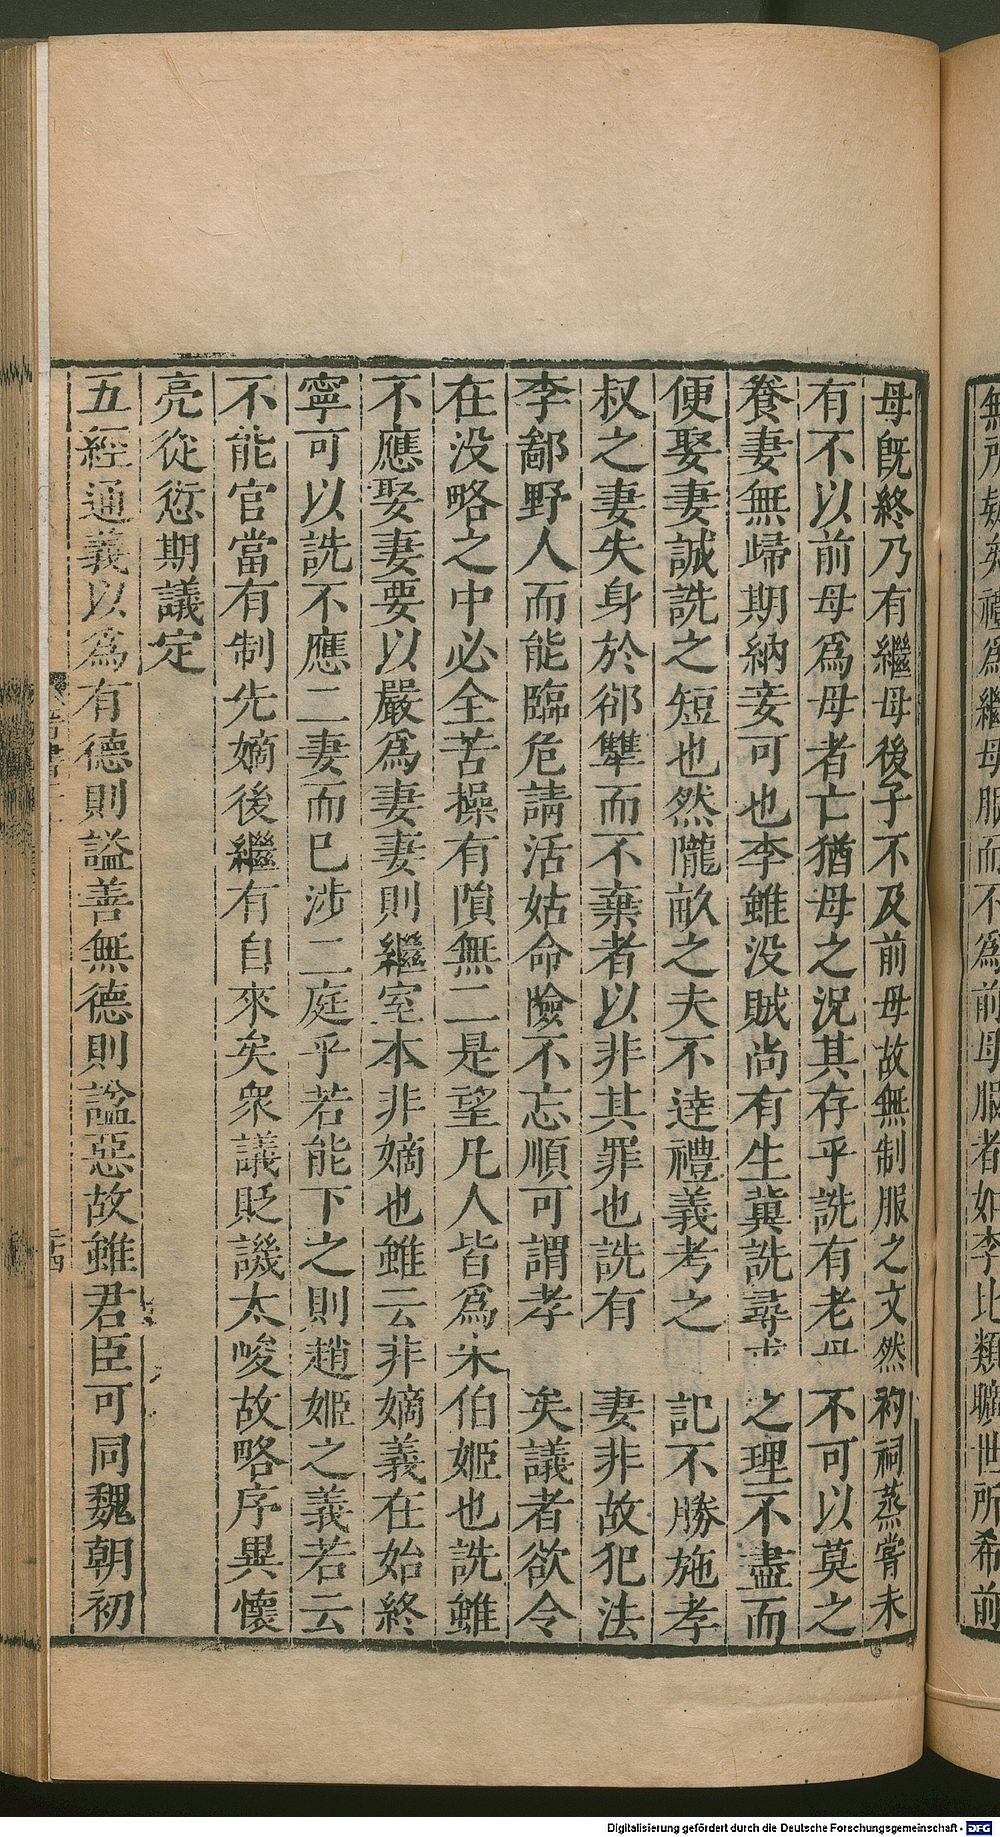 無所疑矣禮爲繼母服而不爲前母服者如李比類曠世所希前
母既終乃有繼母後子不及前母故無制服之文然礿祠蒸嘗未
有不以前母爲母者亡猶母之況其存乎詵有老母不可以莫之
養妻無歸期納妾可也李雖没賊尚有生冀詵尋求之理不盡而
便娶妻誠詵之短也然隴畝之夫不達禮義考之記不勝施孝
叔之妻失身於郤犨而不棄者以非其罪也詵有妻非故犯法
李鄙野人而能臨危請活姑命險不忘順可謂孝矣議者欲令
在没略之中必全苦操有隕無二是望凡人皆爲宋伯姬也詵雖
不應娶妻要以嚴爲妻妻則繼室本非嫡也雖云非嫡義在始終
寧可以詵不應二妻而已涉二庭乎若能下之則趙姬之義若云
不能官當有制先嫡後繼有自來矣衆議貶譏太峻故略序異懷
亮從愆期議定
五經通義以爲有德則謚善無德則謚惡故雖君臣可同魏朝初
Digitalisierung gefördert durch die Deutsche Forschungsgemeinschaft - DFG